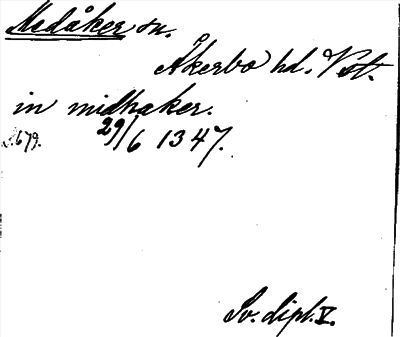 Medåker sn.
Åkerbo hd. Vstl.
in midhaker.
s. 679. 29/6 1347.
Sv. dipl. V.